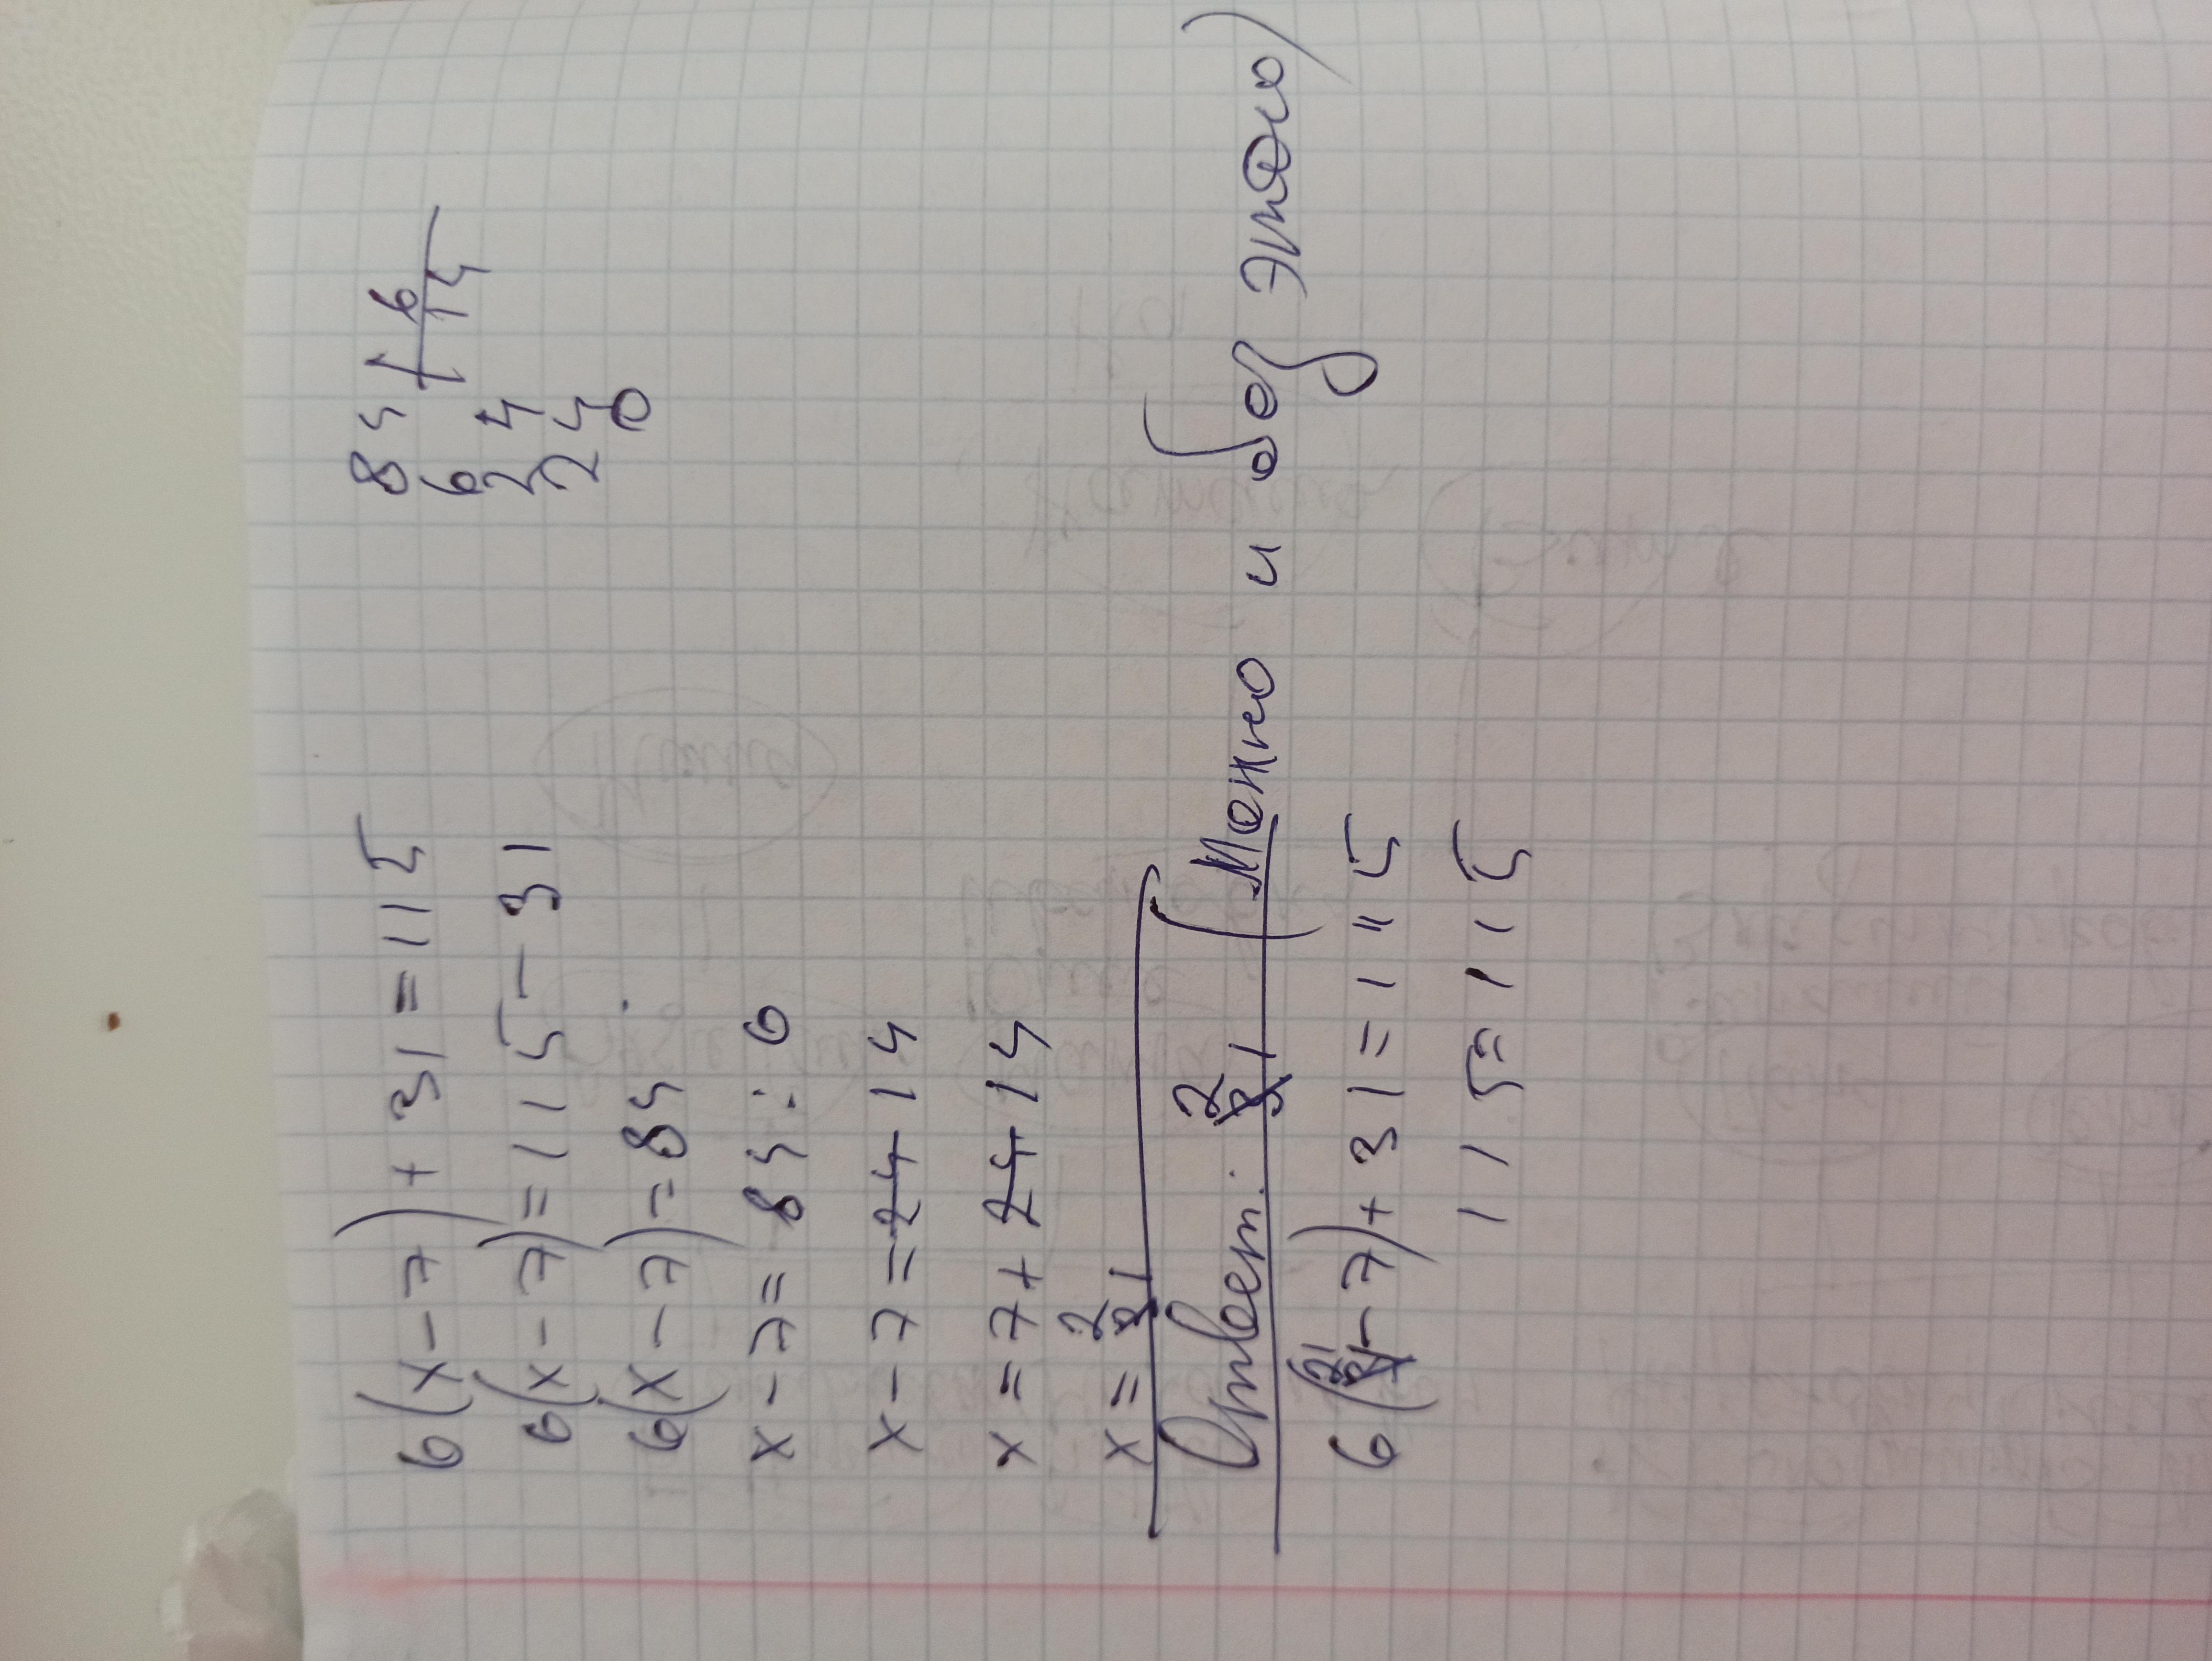 6(x-7)+31=115
6(x-7)=115-31
6(x-7)=84
x-7=84:6
x-7=24 14
x=7+24 14
x=21
Ответ: 21 (Можно и без этого)
6(21-7)+31=115
115=115
84 6
6 14
24
24
0